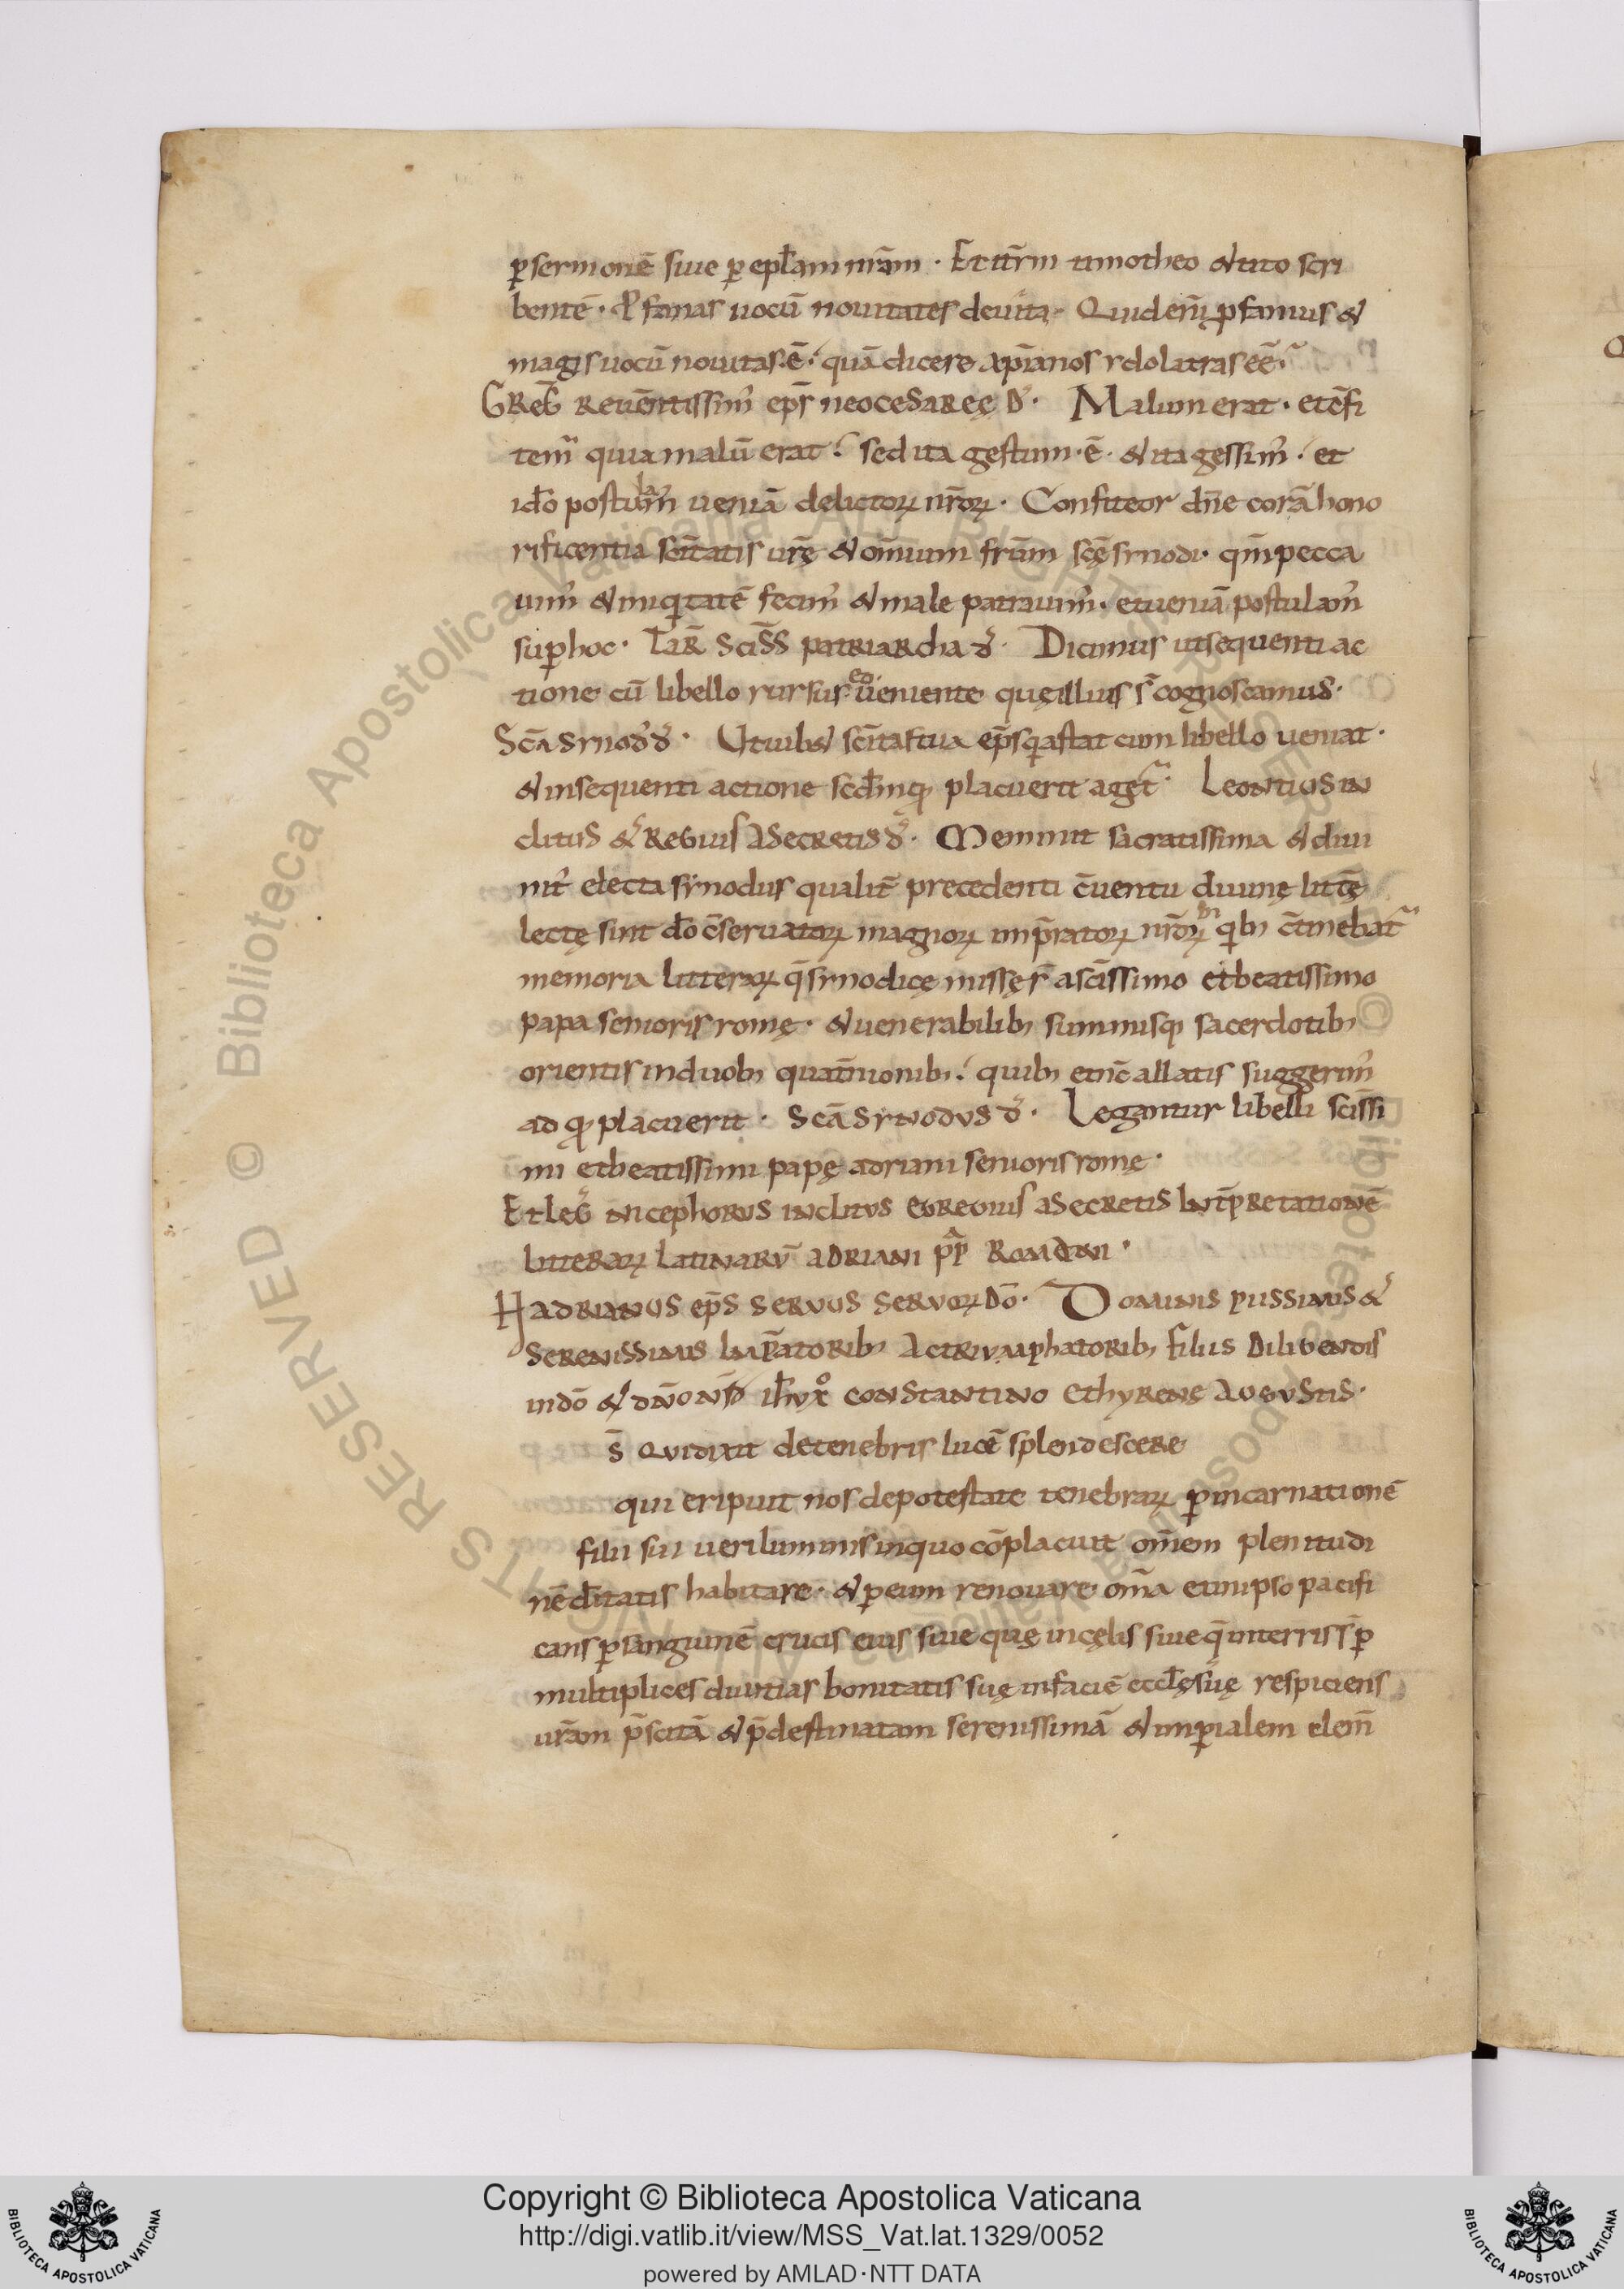 ꝑsermonē siue ꝑ epłam nr̄am · Et itr̄m timotheo & tito scri
bente͂ · Ꝓfanas uocū nouitates deuita · Quid eni͂ ꝓfanius &
magis uocū nouitas · ē · quā dicere xp̄ianos ydolatras eē ·
GREḠ Reuēntissim̓ ep̄s neocesareę D̓ · Malum erat · et c̄fi
tem̓ quia malū erat · sed ita gestum · ē · & ita gessim̓ · et
id̄o postulam̓ ueniā delictoꝝ nr̄oꝝ · Confiteor dn̄e corā hono
rificentia sc̄itatis ur̄ę & om̄ium fr̄um sc̄ę synodi · qm̄ pecca
uim̓ & iniqͥtatē fecim̓ & male patrauim̓ · et ueniā postulam̓
suꝑ hoc · TAR̄ SCIS̄S PATRIARcha d̓ · Dicimus ut sequenti ac
tione cū libello rursus eo ueniente quę illius s̄ cognoscamus ·
Sc̄A Synod̓ d̓ · Ut iubet sc̄itas tua ep̄s qͥ astat cum libello ueniat ·
& in sequenti actione sed̄m qꝫ placuerit aget᷑ · Leontius in
clitus & Regius A Secretis d̓ · Meminit sacratissima & diui
nit̓ electa synodus qualit̄ precedenti c̄uentu diuinę litt̄ę
lectę sint d̄o c̄seruatoꝝ magnoꝝ imꝑatoꝝ nr̄oꝝ in qͥbꝫ c̄tinebat᷑
memoria litteraꝝ q̄ synodicę missę s̄ a sc̄issimo et beatissimo
papa senioris romę · & uenerabilibꝫ summisqꝫ sacerdotibꝫ
orientis in duobꝫ quat̄nionibꝫ · quibꝫ et nc̄ allatis suggerim̓
ad qꝫ placuerit · Sc̄A Synodus d̓ · Legantur libelli sc̄issi
mi et beatissimi papę adriani senioris romę ·
Et Leḡ Nicephorus inclitus egregius A Secretis Int̄ꝑretationē
Litteraꝝ Latinarū Adriani pp̄ Romani ·
Hadrianus ep̄s Servus Servoꝝ Dō · Dominis piissimis &
Serenissimis Imꝑatoribꝫ Ac triumphatoribꝫ filiis Diligentis
in dō & dn̄o nr̄o ih̄u xp̊o Constantino et hyrene Augustis ·
D̄S qui dixit de tenebris lucē splendescere
qui eripuit nos de potestate tenebraꝝ ꝑ incarnationē
filii sui ueri luminis in quo cōplacuit om̄em plenitudi
nē d̄itatis habitare · & ꝑ eum renouare om̄a et in ipso pacifi
cans ꝑ sanguinē crucis eius siue quę in cęlis siue q̄ in terris s̄ ꝑ
multiplices diuitias bonitatis suę in faciē eccłę suę respiciens
ur̄am p̄scitā & p̄destinatam serenissimā & imꝑialem clem̄
Copyright © Biblioteca Apostolica Vaticana
http://digi.vatlib.it/view/MSS_Vat.lat.1329/0052
powered by AMLAD·NTT DATA
BIBLIOTECA APOSTOLICA VATICANA
BIBLIOTECA APOSTOLICA VATICANA